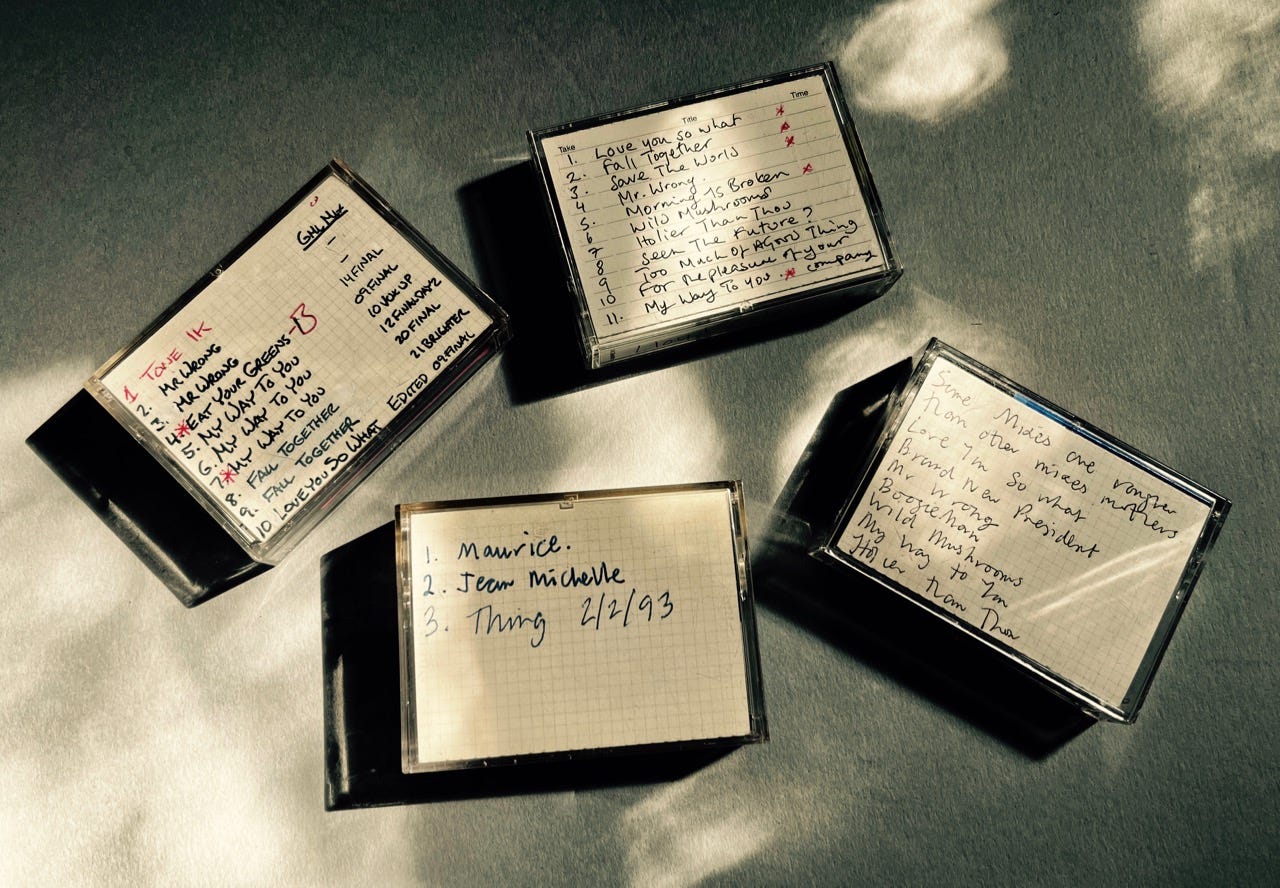 Take Title Time
1. Love you so what *
2. Fall Together *
3. Save The World *
4 Mr. Wrong.
5. Morning Is Broken *
6 Wild Mushrooms
7 Holier Than Thou
8 Seen The Future?
9 Too Much Of A Good Thing
10 For the pleasure of your company
11. My Way To You. *
1 TONE 1K
2. MR WRONG -
3. MR WRONG -
4 * EAT YOUR GREENS - B 14 FINAL
5. MY WAY TO YOU 09 FINAL
6. MY WAY TO YOU 10 VOX UP
7. * MY WAY TO YOU 12 FINAL DAY 2
8. FALL TOGETHER 20 FINAL
9. FALL TOGETHER 21 BRIGHTER
10 LOVE YOU SO WHAT EDITED 09 FINAL
Some Mixes are rougher
than other mixes mothers
Love you so what
Brand New President
Mr Wrong
Boogieman
Wild Mushrooms
My Way to You
Holier than Thou
1. Maurice.
2. Jean Michelle
3. Thing 2/2/93